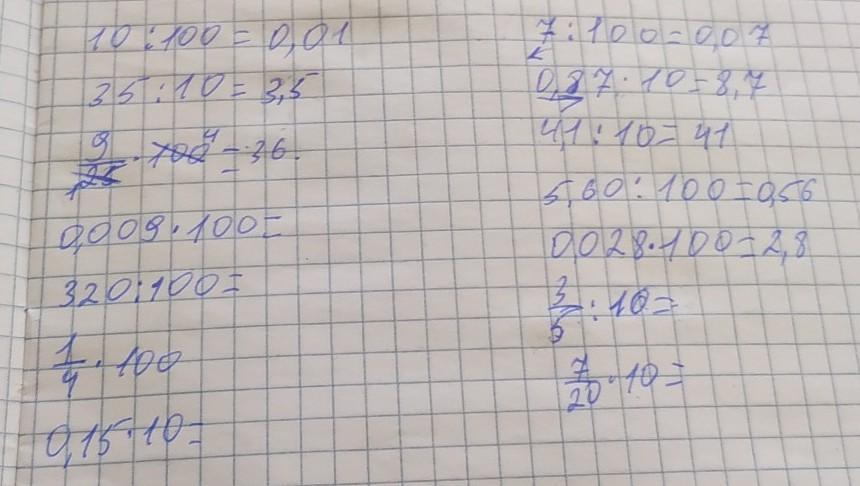 10 : 100 = 0,01
35 : 10 = 3,5
9/25 · 100 4 = 36
0,009 · 100 =
320 : 100 =
1/4 · 100
0,15 · 10 =
7 : 100 = 0,07
0,87 · 10 = 8,7
4,1 : 10 = 41
5,60 : 100 = 0,56
0,028 · 100 = 2,8
3/5 : 10 =
7/20 · 10 =